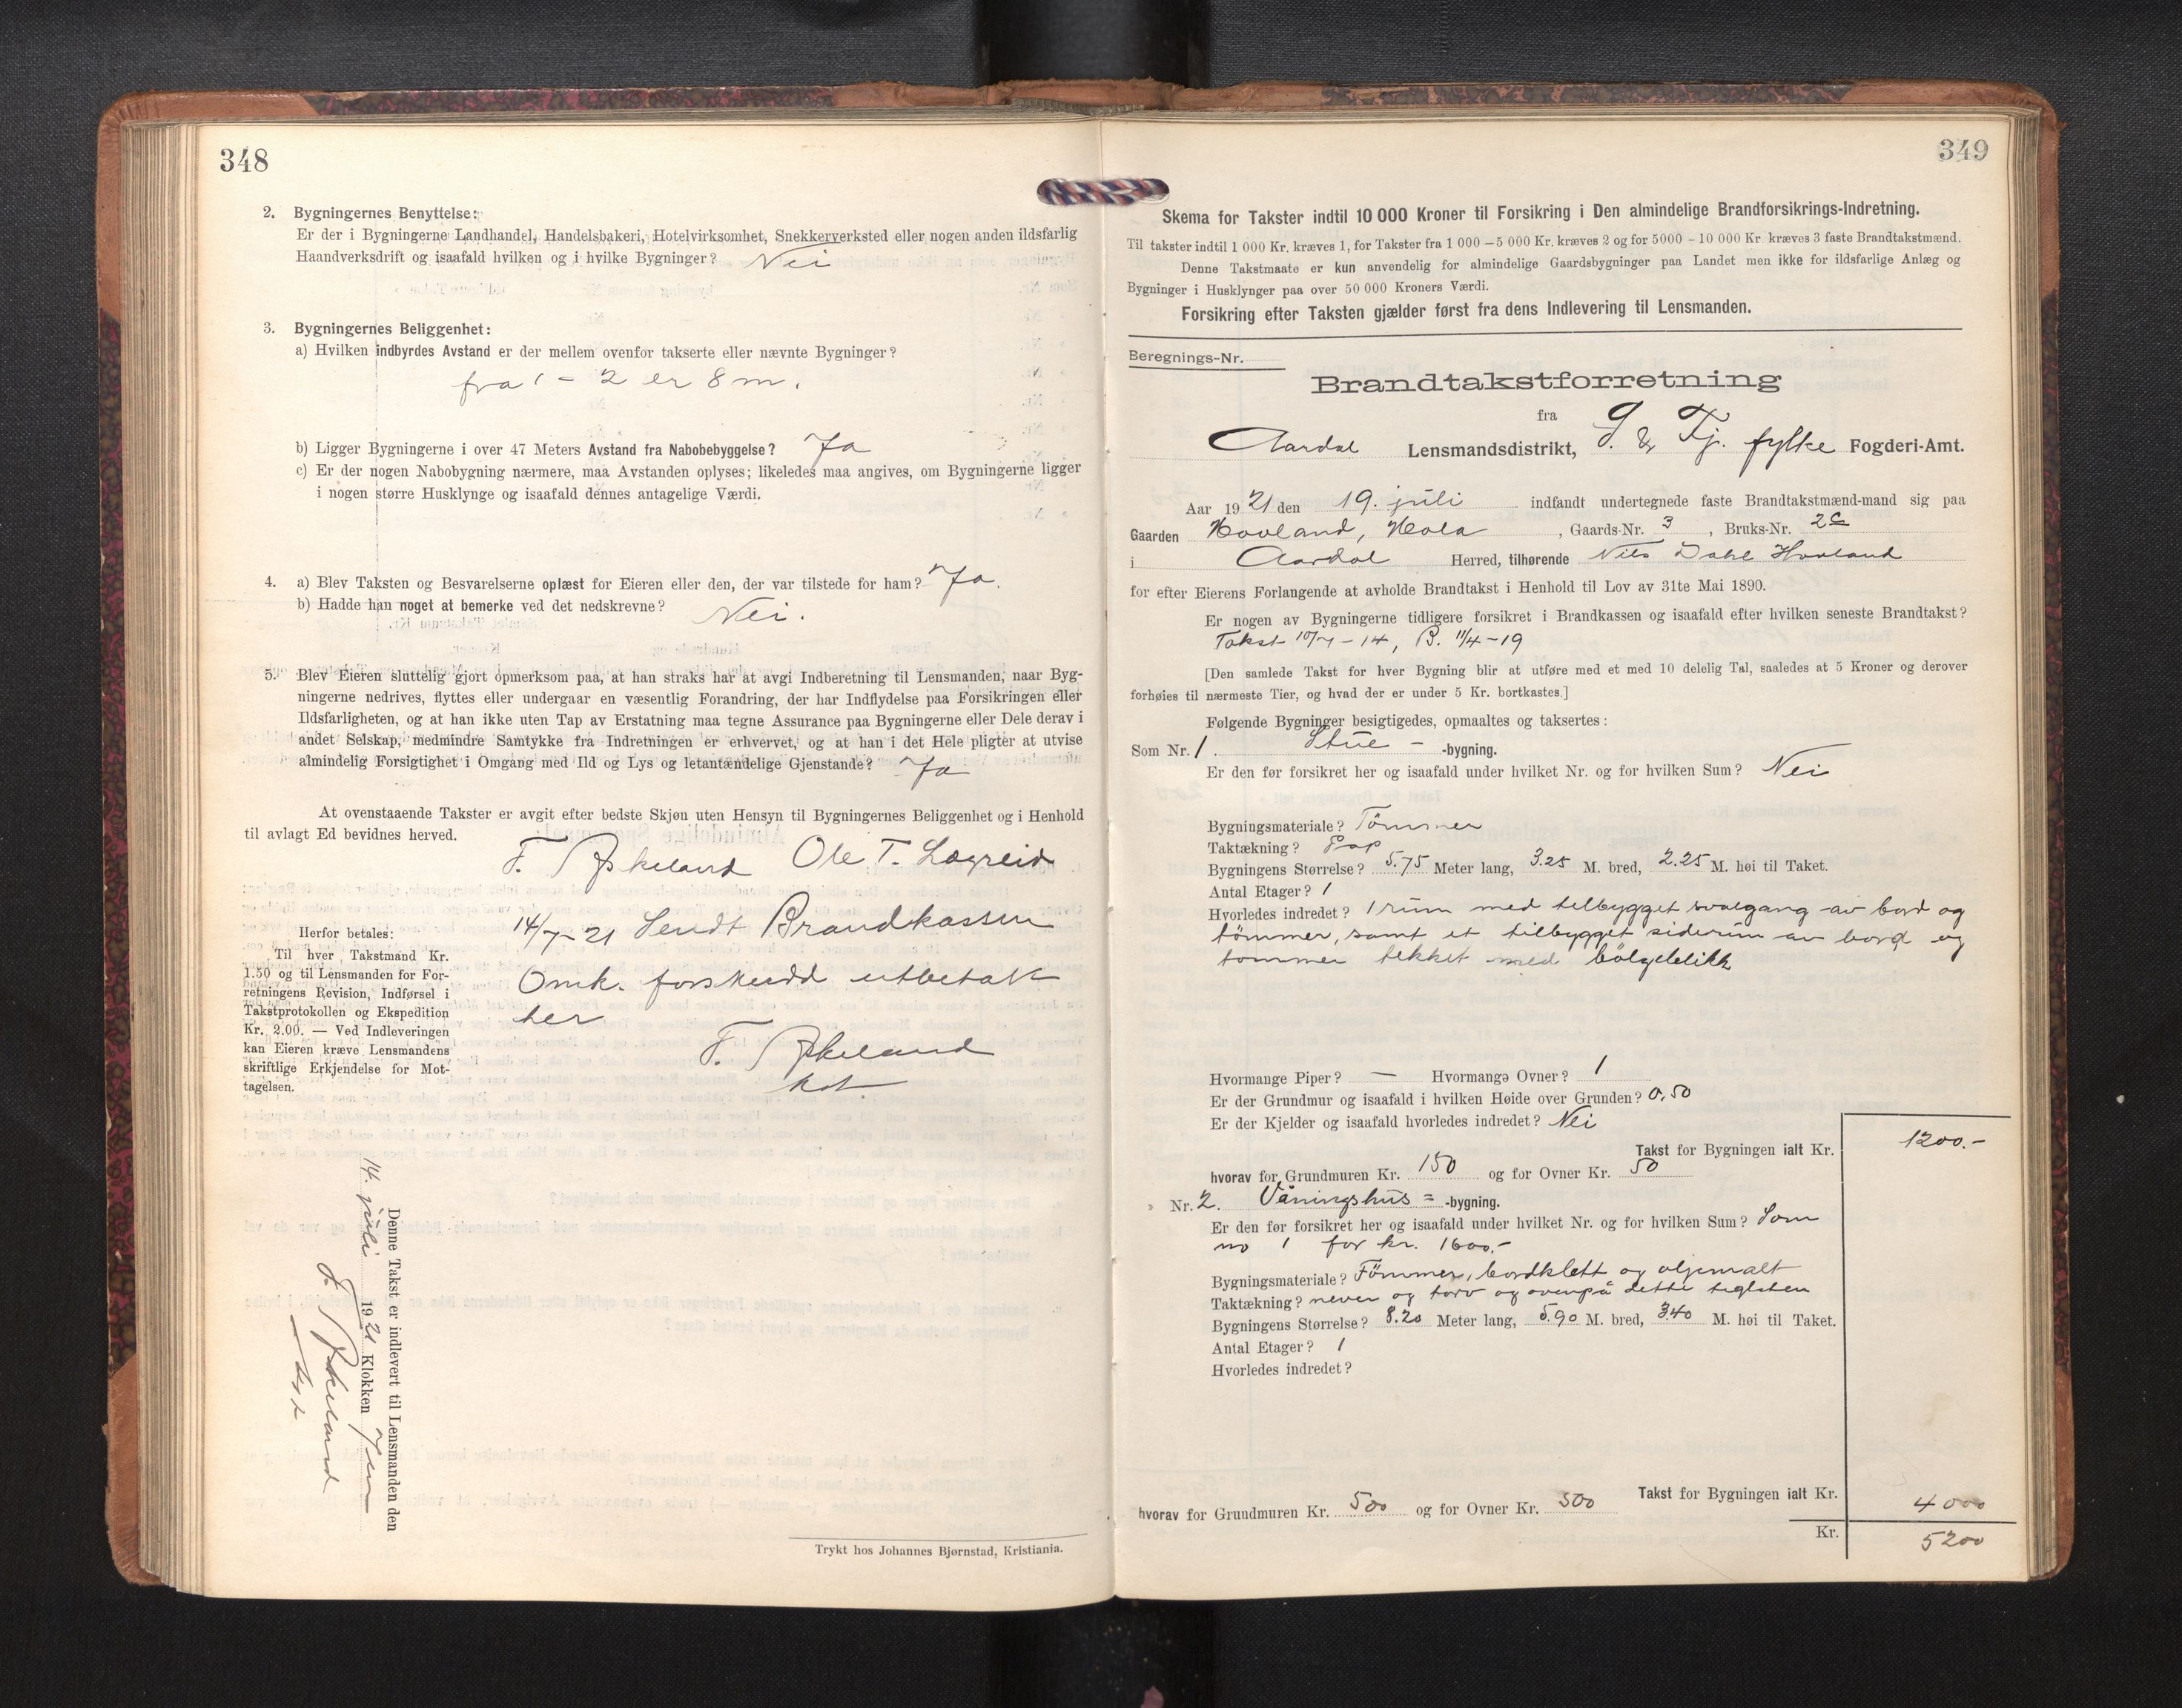 348
2. Bygningernes Benyttelse:
Er der i Bygningerne Landhandel, Handelsbakeri, Hotelvirksomhet, Snekkerverksted eller nogen anden ildsfarlig
Haandverksdrift og isaafald hvilken og i hvilke Bygninger? Nei
3. Bygningernes Beliggenhet:
a) Hvilken indbyrdes Avstand er der mellem ovenfor takserte eller nævnte Bygninger?
fra 1 - 2 er 8 m.
b) Ligger Bygningerne i over 47 Meters Avstand fra Nabobebyggelse? Ja
c) Er der nogen Nabobygning nærmere, maa Avstanden oplyses; likeledes maa angives, om Bygningerne ligger
i nogen større Husklynge og isaafald dennes antagelige Værdi.
4. a) Blev Taksten og Besvarelserne oplæst for Eieren eller den, der var tilstede for ham? Ja.
b) Hadde han noget at bemerke ved det nedskrevne? Nei.
5. Blev Eieren sluttelig gjort opmerksom paa, at han straks har at avgi Indberetning til Lensmanden, naar Byg-
ningerne nedrives, flyttes eller undergaar en væsentlig Forandring, der har Indflydelse paa Forsikringen eller
Ildsfarligheten, og at han ikke uten Tap av Erstatning maa tegne Assurance paa Bygningerne eller Dele derav i
andet Selskap, medmindre Samtykke fra Indretningen er erhvervet, og at han i det Hele pligter at utvise
almindelig Forsigtighet i Omgang med Ild og Lys og letantændelige Gjenstande? Ja
At ovenstaaende Takster er avgit efter bedste Skjøn uten Hensyn til Bygningernes Beliggenhet og i Henhold
til avlagt Ed bevidnes herved.
F. Askeland Ole T. Lægreid
14/7-21 Sendt Brandkassen
Omk. forskudd utbetalt
her
F. Askeland
kst
Herfor betales:
Til hver Takstmand Kr.
1.50 og til Lensmanden for For-
retningens Revision, Indførsel i
Takstprotokollen og Ekspedition
Kr. 2.00. — Ved Indleveringen
kan Eieren kræve Lensmandens
skriftlige Erkjendelse for Mot-
tagelsen.
Denne Takst er indlevert til Lensmanden den
14. juli 1921 Klokken
F. Askeland
kst
Trykt hos Johannes Bjørnstad, Kristiania.
349
Skema for Takster indtil 10 000 Kroner til Forsikring i Den almindelige Brandforsikrings-Indretning.
Til takster indtil 1 000 Kr. kræves 1, for Takster fra 1 000 – 5 000 Kr. kræves 2 og for 5000 – 10 000 Kr kræves 3 faste Brandtakstmænd.
Denne Takstmaate er kun anvendelig for almindelige Gaardsbygninger paa Landet men ikke for ildsfarlige Anlæg og
Bygninger i Husklynger paa over 50 000 Kroners Værdi.
Forsikring efter Taksten gjælder først fra dens Indlevering til Lensmanden.
Beregnings-Nr.
Brandtakstforretning
fra
Aardal Lensmandsdistrikt, S. & Fj. fylke Fogderi-Amt.
Aar 1921 den 19. juli indfandt undertegnede faste Brandtakstmænd-mand sig paa
Gaarden Hovland, Hola, Gaards-Nr. 3, Bruks-Nr. 2c
i Aardal Herred, tilhørende Nils Dahl Hovland
for efter Eierens Forlangende at avholde Brandtakst i Henhold til Lov av 31te Mai 1890.
Er nogen av Bygningerne tidligere forsikret i Brandkassen og isaafald efter hvilken seneste Brandtakst?
Takst 10/7-14, B. 11/4-19
[Den samlede Takst for hver Bygning blir at utføre med et med 10 delelig Tal, saaledes at 5 Kroner og derover
forhøies til nærmeste Tier, og hvad der er under 5 Kr. bortkastes.]
Følgende Bygninger besigtigedes, opmaaltes og taksertes:
Som Nr. 1. Stue - -bygning.
Er den før forsikret her og isaafald under hvilket Nr. og for hvilken Sum? Nei
Bygningsmateriale? Tömmer
Taktækning? Pap
Bygningens Størrelse? 5.75 Meter lang, 3.25 M. bred, 2.25 M. høi til Taket.
Antal Etager? 1
Hvorledes indredet? 1 rum med tilbygget svalgang av bord og
tömmer, samt et tilbygget siderum av bord og
tömmer tekket med bölgeblikk
Hvormange Piper? — Hvormange Ovner? 1
Er der Grundmur og isaafald i hvilken Høide over Grunden? 0.50
Er der Kjelder og isaafald hvorledes indredet? Nei
Takst for Bygningen ialt Kr. 1200.-
hvorav for Grundmuren Kr. 150 og for Ovner Kr. 50
» Nr. 2. Våningshus = -bygning.
Er den før forsikret her og isaafald under hvilket Nr. og for hvilken Sum? Som
no 1 for kr. 1600.-
Bygningsmateriale? Tömmer, bordklett og oljemalt
Taktækning? never og torv og ovenpå dette teglsten
Bygningens Størrelse? 8.20 Meter lang, 5.90 M. bred, 3.40 M. høi til Taket.
Antal Etager? 1
Hvorledes indredet?
Takst for Bygningen ialt Kr. 4000
hvorav for Grundmuren Kr. 500 og for Ovner Kr. 500
Kr. 5200